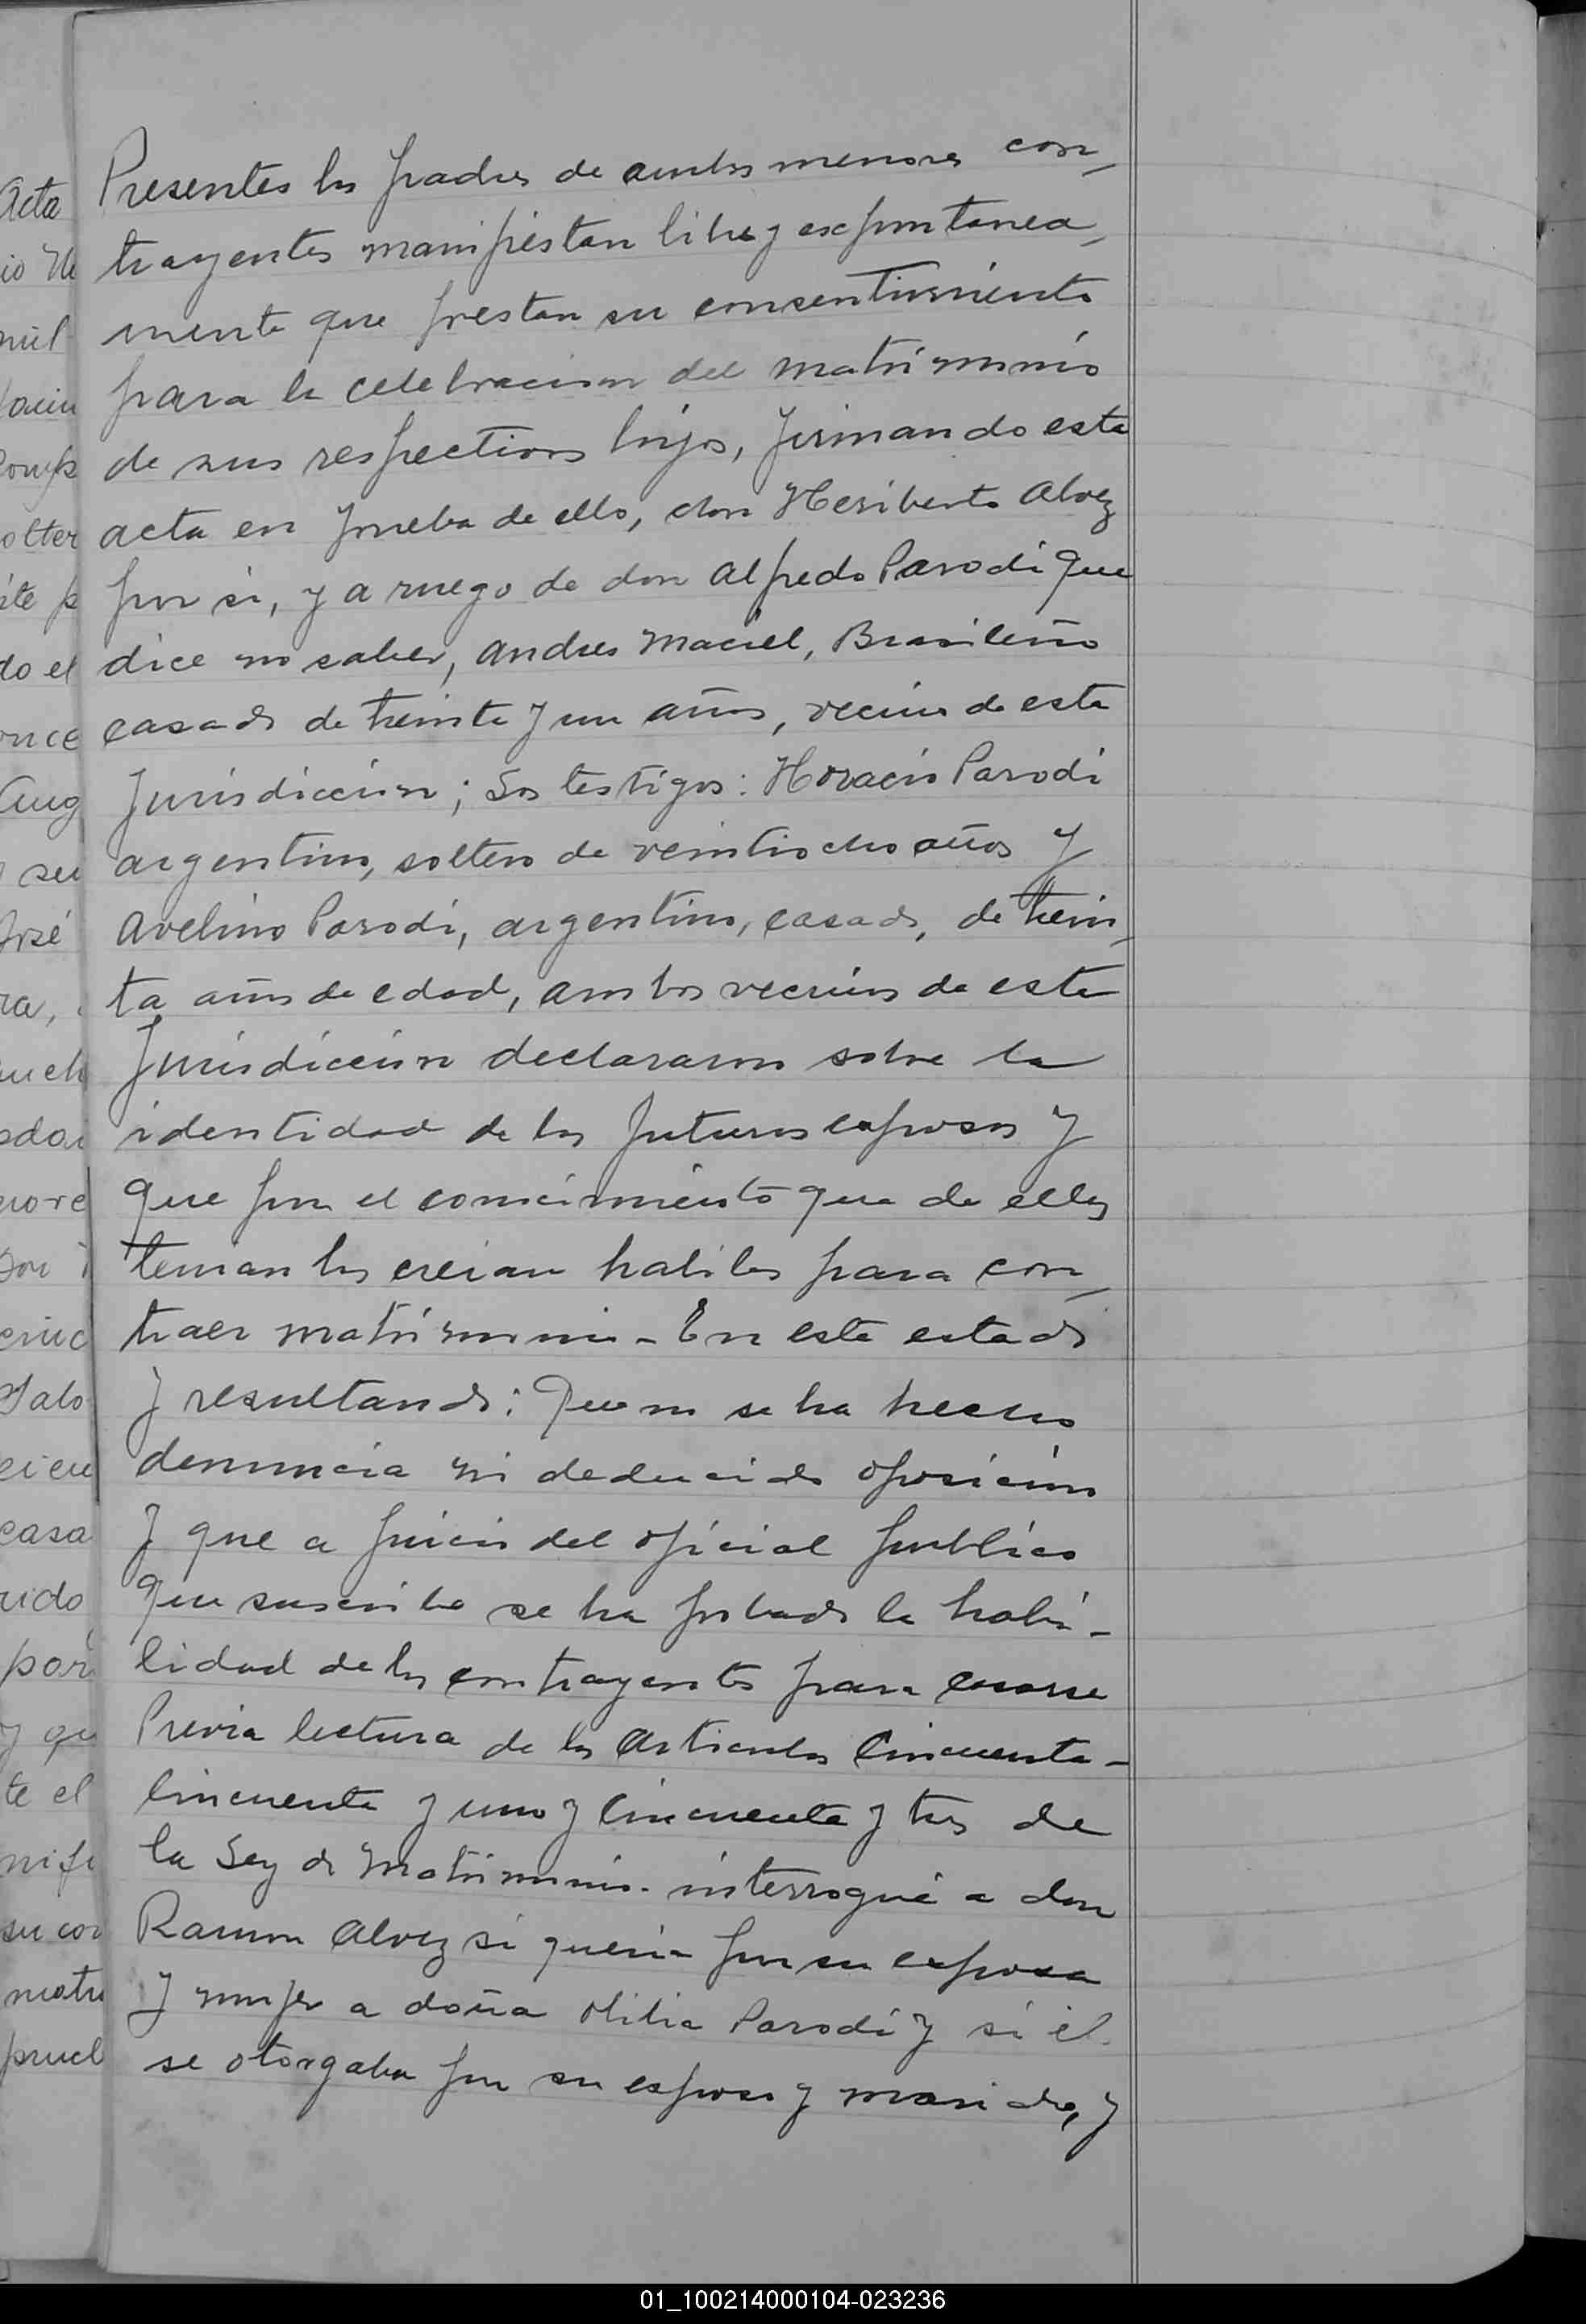 Presentes los padres de ambos menores con,
trayentes manifiestan libre y expontanea,
mente que prestan su consentimiento
para la celebracion del matrimonio
de sus respectivos hijos, firmando esta
acta en prueba de ello, don Heriberto Alvez
por si, y a ruego de don Alfredo Parodi que
dice no saber, Andres Maciel, Brasileño
casado de treinta y un años, vecino de esta
Jurisdiccion; Los testigos: Horacio Parodi
argentino, soltero de veintiocho años y
Avelino Parodi, argentino, casado, de trein,
ta años de edad, ambos vecinos de esta
Jurisdiccion declararon sobre la
identidad de los futuros esposos y
que por el conocimiento que de ellos
tenian los creian habiles para con,
traer matrimonio - En este estado
y resultando: Que no se ha hecho
denuncia ni deducido oposicion
y que a juicio del oficial publico
que suscribe se ha probado la habi-
lidad de los contrayentes para casarse
Previa lectura de los Articulos Cincuenta -
Cincuenta y uno y Cincuenta y tres de
la Ley de Matrimonio. interrogué a don
Ramon Alvez si queria por su esposa
y mujer a doña Otilia Parodi y si él
se otorgaba por su esposo y marido, y
Acta
mil
do el
once
su
José
casa
por
y qu
te el
su con
matri
prueb
01_100214000104-023236